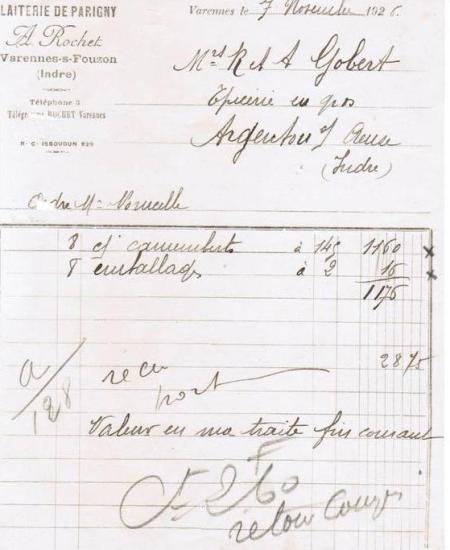 LAITERIE DE PARIGNY
A. Rochet
Varennes-s-Fouzon
(Indre)
Téléphone 3
Télégr. ROCHET Varennes
R. C. ISSOUDUN 829
Varennes le 7 Novembre 1926.
Mrs R et A Gobert
Epicerie en gros
Argenton s/ Creuse
(Indre)
Ordre Mr
8 cj camemberts à 145 1160 x
8 emballages à 2 16 x
1176
28 75
a/128
recu
port
Valeur en ma traite fin courant
retour